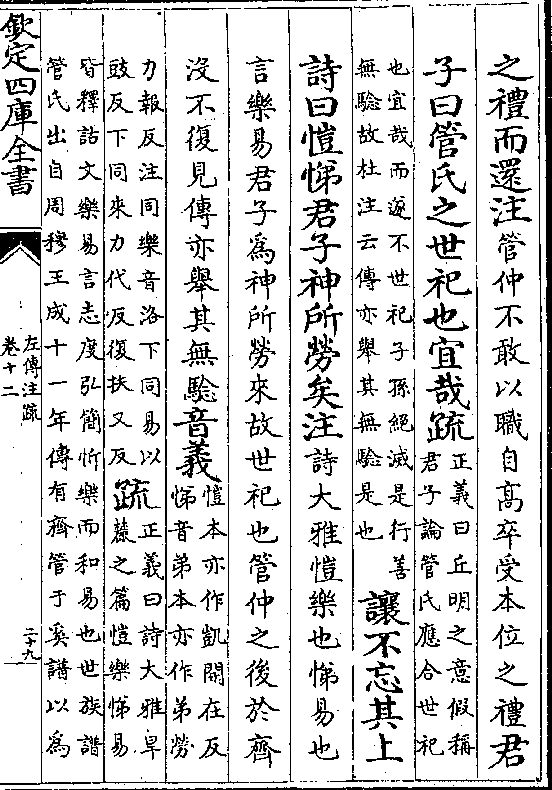 之禮而還注管仲不敢以職自高卒受本位之禮君
子曰管氏之世祀也宜哉疏正義曰丘明之意假稱
君子論管氏應合世祀
也宜哉而遂不世祀子孫絕滅是行善
無驗故杜注云傳亦舉其無驗是也
讓不忘其上
詩曰愷悌君子神所勞矣注詩大雅愷樂也悌易也
言樂易君子為神所勞來故世祀也管仲之後於齊
沒不復見傳亦舉其無驗音義愷本亦作凱開在反
悌音弟本亦作弟勞
力報反注同樂音洛下同易以
豉反下同來力代反復扶又反
疏正義曰詩大雅旱
麓之篇愷樂悌易
皆釋詁文樂易言志度弘簡忻樂而和易也世族譜
管氏出自周穆王成十一年傳有齊管于奚譜以為
欽定四庫全書
左傳注疏
卷十二
二十九